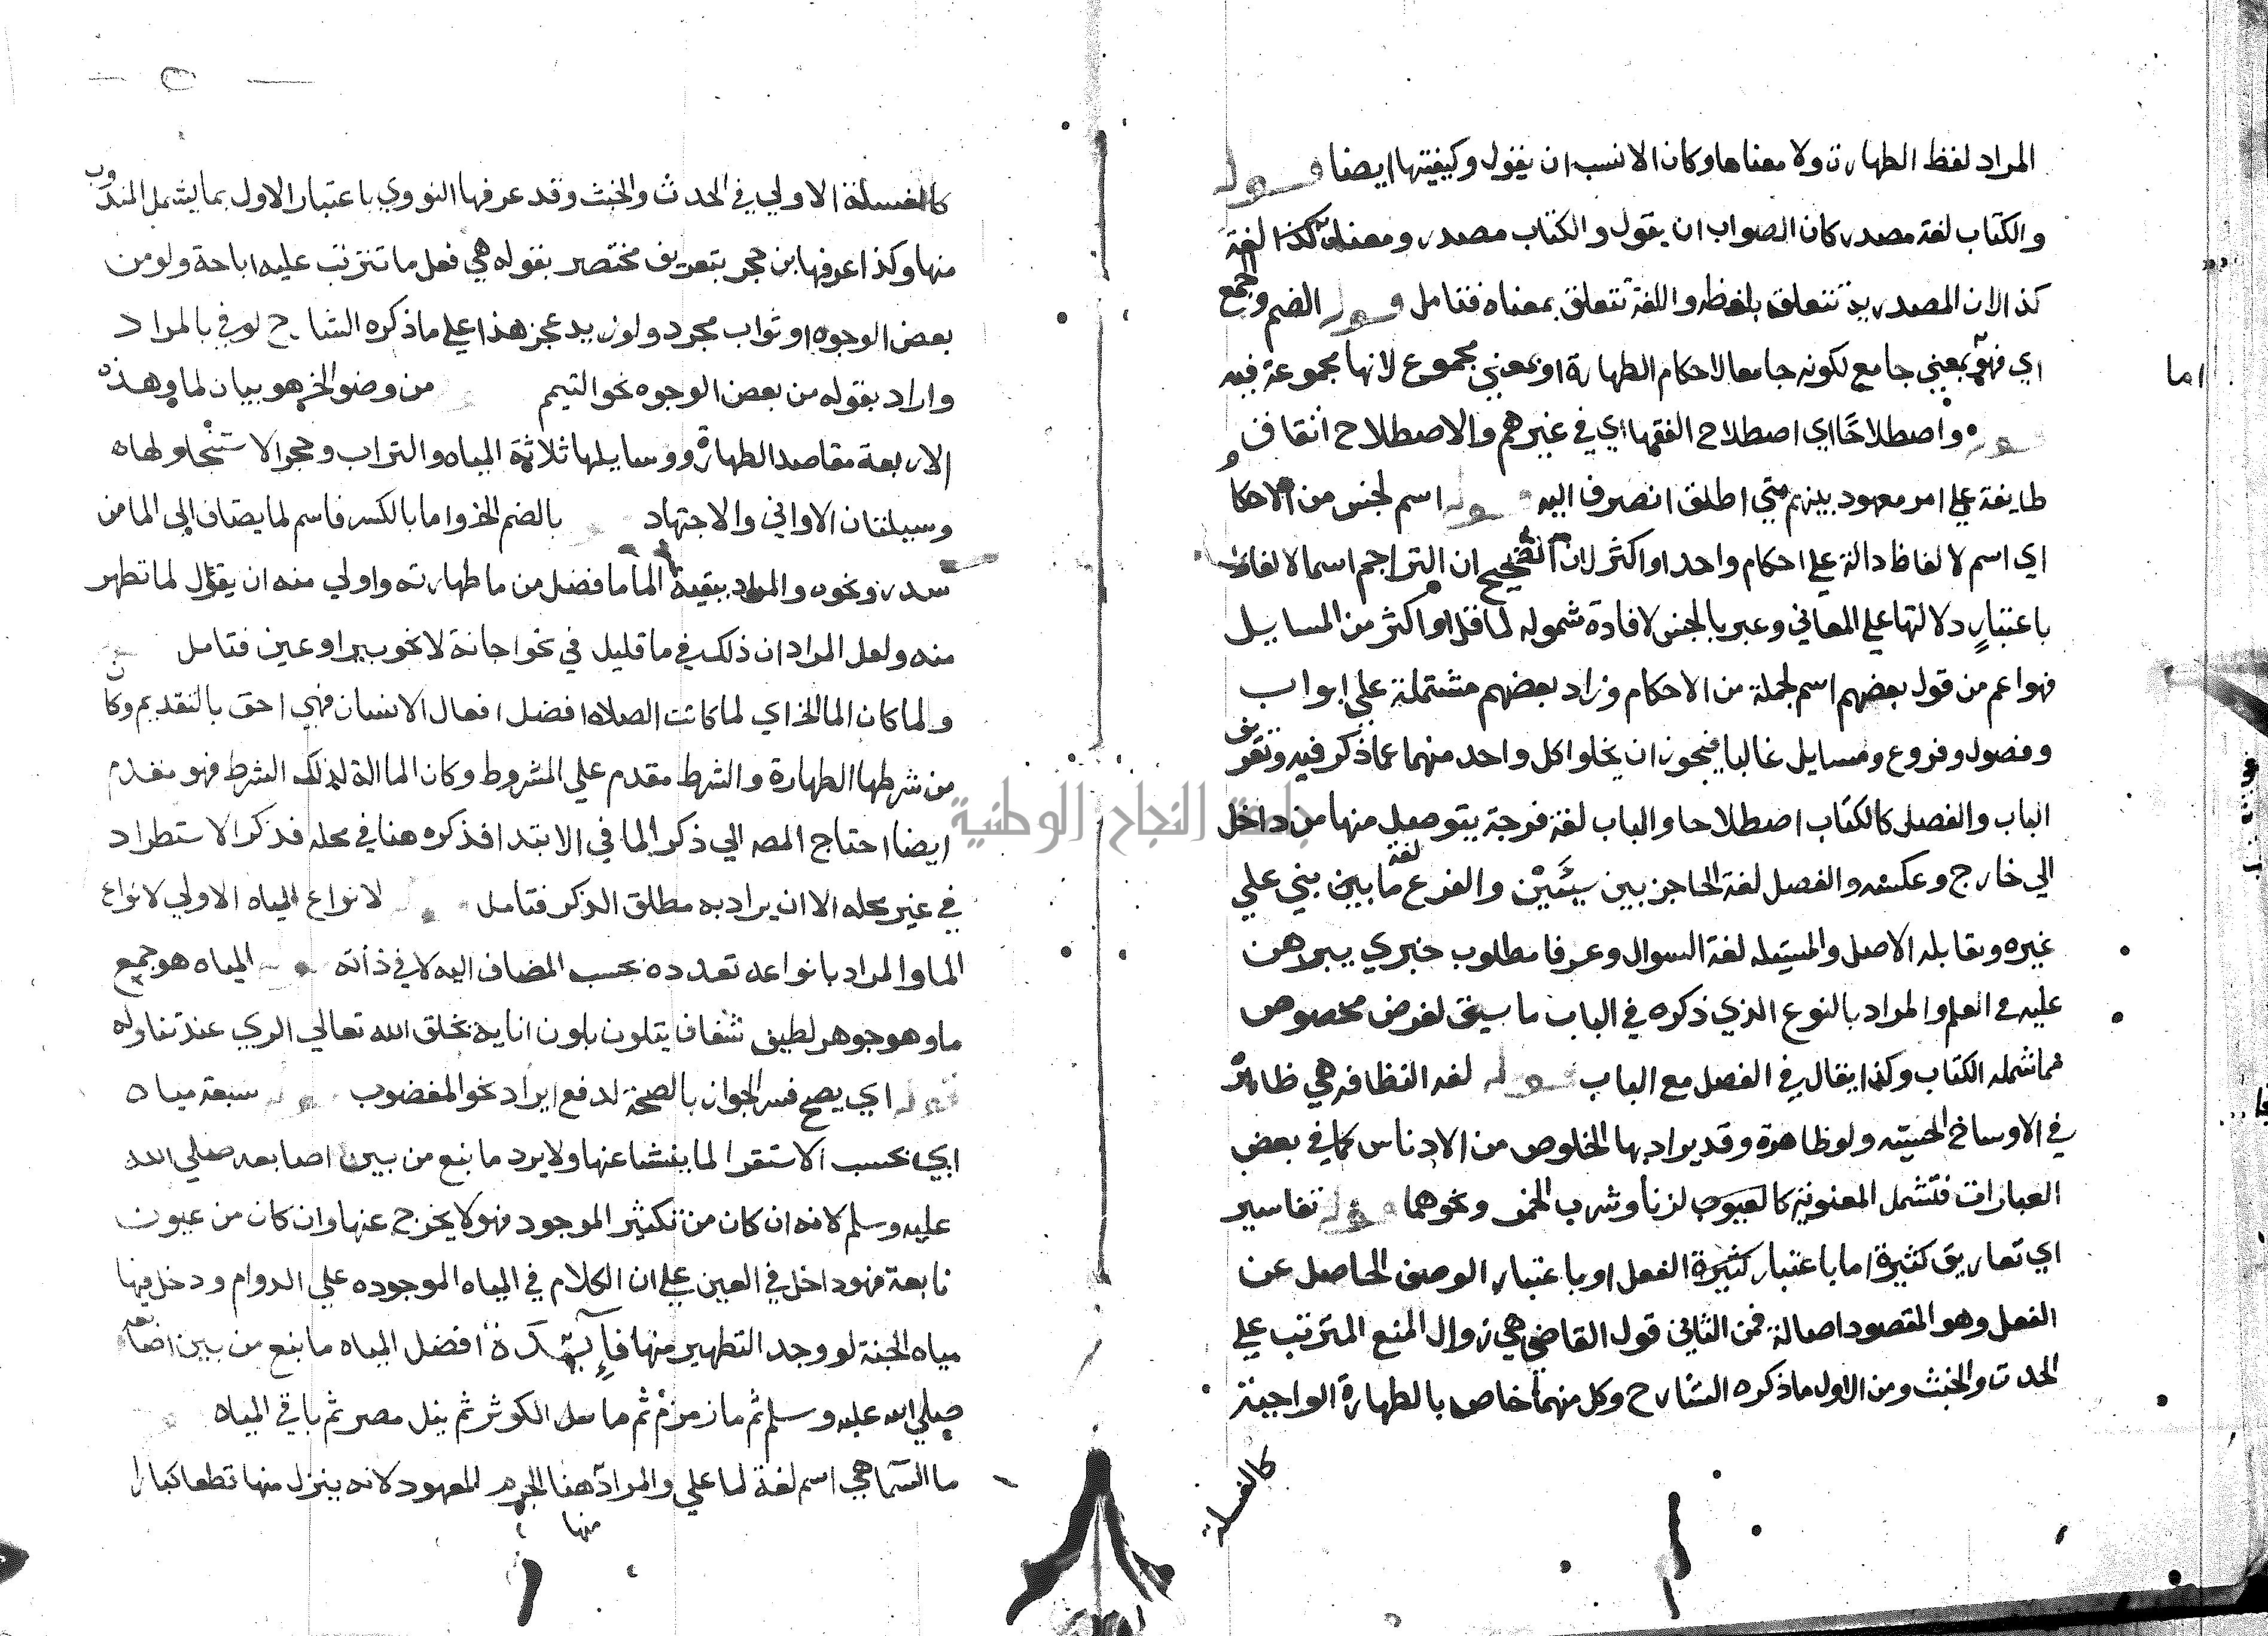 المراد لفظ الطهارة ولا معناها وكان الانسب ان يقول وكيفيتها ايضا قوله
والكتاب لغة مصدر كان الصواب ان يقول والكتاب مصدر ومعناه كذا لغة
كذا لان المصدرية تتعلق بلفظه واللغة تتعلق بمعناه فتامل قوله الضم والجمع
اي فهو بمعني جامع لكونه جامعا لاحكام الطهارة او بمعني مجموع لانها مجموعة فيه
اما
قوله واصطلاحا اي اصطلاح الفقها اي في غيرهم والاصطلاح اتفاق
طايفة علي امر معهود بينهم متي اطلق انصرف اليه قوله اسم لجنس من الاحكا
اي اسم لالفاظ دالة علي احكام واحد او اكثر لان الصحيح ان التراجم اسما لالفاظ
باعتبار دلالتها علي المعاني وعبر بالجنس لافادة شموله لما قل او اكثر من المسايل
فهو اعم من قول بعضهم اسم لجملة من الاحكام وزاد بعضهم مشتملة علي ابواب
وفصول وفروع ومسايل غالبا فيجوز ان يخلوا كل واحد منهما عما ذكر فيه وتعريف
الباب والفصل كالكتاب اصطلاحا والباب لغة فرجة يتوصل منها من داخل
الي خارج وعكسه والفصل لغة الحاجز بين شيئين والفرع لغة ما بني علي
غيره ويقابله الاصل والمسئله لغة السوال وعرفا مطلوب خبري يبرهن
عليه في العلم والمراد بالنوع الذي ذكره في الباب ما سيق لغرض مخصوص
مما شمله الكتاب وكذا يقال في الفصل مع الباب قوله لغه النظافه هي
في الاوساخ الحسيته ولو ظاهرة وقد يراد بها الخلوص من الادناس كما في بعض
العبارات فتشمل المعنوية كالعيوب لزنا وشرب الخمر ونحوهما قوله تفاسير
اي تعاريف كثيرة اما باعتبار كثيرة الفعل او باعتبار الوصف الحاصل عن
الفعل وهو المقصود اصالة فمن الثاني قول القاضي هي زوال المنع المترتب علي
الحدث والخبث ومن الاول ما ذكره الشارح وكل منهما خاص بالطهارة الواجبة
كالغسلة
كالغسلة الاولي في الحدث والخبث وقد عرفها النووي باعتبار الاول بما يشمل المندوب
منها وكذا عرفها ابن حجر بتعريف مختصر بقوله هي فعل ما تترتب عليه اباحة ولو من
بعض الوجوه او ثواب مجرد ولو زيد عجز هذا علي ما ذكره الشارح لوفي بالمراد
واراد بقوله من بعض الوجوه نحو التيمم من وضو الخ هو بيان لما وهذه
الاربعة مقاصد الطهارة ووسايلها ثلاثة المياه والتراب وحجر الاستنجا ولهاه
وسيلتان الاواني والاجتهاد بالضم الخ واما بالكسر فاسم لما يضاف الي الما من
سدر ونحوه والمراد ببقية الما ما فضل من ما طهارته واولي منه ان يقال لما تطهر
منه ولعل المراد ان ذلك في ما قليل في نحو اجانة لا نحو بير او عين فتامل
ولما كان الما الخ اي لما كانت الصلاه افضل افعال الانسان فهي احق بالتقديم وكان
من شرطها الطهارة والشرط مقدم علي المشروط وكان الما الة لذلك الشرط فهو مقدم
ايضا احتاج المصه الي ذكر الما في الابتدا فذكره هنا في محله فذكر الاستطراد
في غير محله الا ان يراد به مطلق الذكر فتامل قوله لانواع المياه الاولي لانواع
الما والمراد بانواعه تعدده بحسب المضاف اليه لا في ذاته قوله المياه هو جمع
ما وهو جوهر لطيف شفاف يتلون بلون انايه يخلق الله تعالي الري عند تناوله
قوله اي يصح فسر الجواز بالصحة لدفع ايراد نحو المغضوب قوله سبعة مياه
اي بحسب الاستقرا لما ينشا عنها ولا يرد ما نبع من بين اصابعه صلي الله
عليه وسلم لانه ان كان من تكثير الموجود فهو لا يخرج عنها وان كان من عيون
نابعة فهو داخل في العين علي ان الكلام في المياه الموجوده علي الدوام ودخل فيها
مياه الجنة لو وجد التطهير منها فايدة افضل المياه ما نبع من بين اصابعه
صلي الله عليه وسلم ثم ما زمزم ثم ما الكوثر ثم نيل مصر ثم باقي المياه
ما السما هي اسم لغة لما علي والمراد هنا الجرم المعهود لانه ينزل منها قطعا كبارا
منها
جامعة النجاح الوطنية